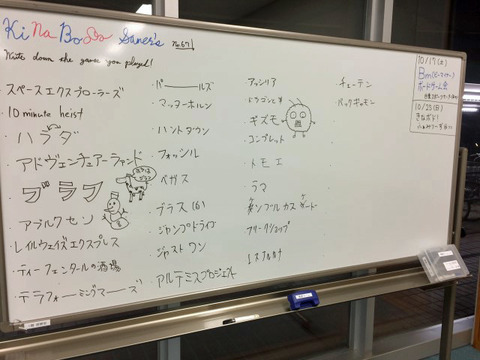 KiNaBoDo Gamer's no.67!
Write down the game you played!
スペースエクスプローラーズ
10 minute heist
ハラダ
アドヴェンチュアーランド
ブラフ
アブルクセン
レイルウェイズエクスプレス
ティーフェンタールの酒場
テラフォーミングマーズ
パールズ
マッターホルン
ハントタウン
フォッシル
ベガス
プラス
ジャンプドライブ
ジャストワン
アルテミスプロジェクト
アッシリア
ドラゴンと
ギズモ
コンプレット
トモエ
ラマ
フリークショップ
チューデン
バックギャモン
10/17(土)
ボードゲーム会
10/25(日)
きなボド!